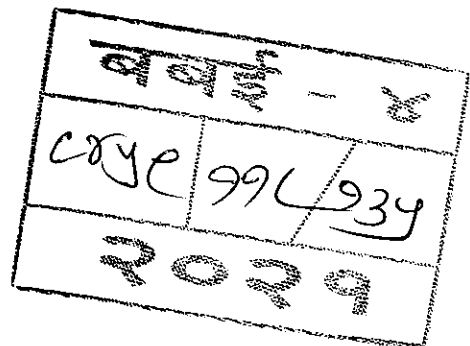 बबई - ४
८४५९ ११८/१३५
२०२१